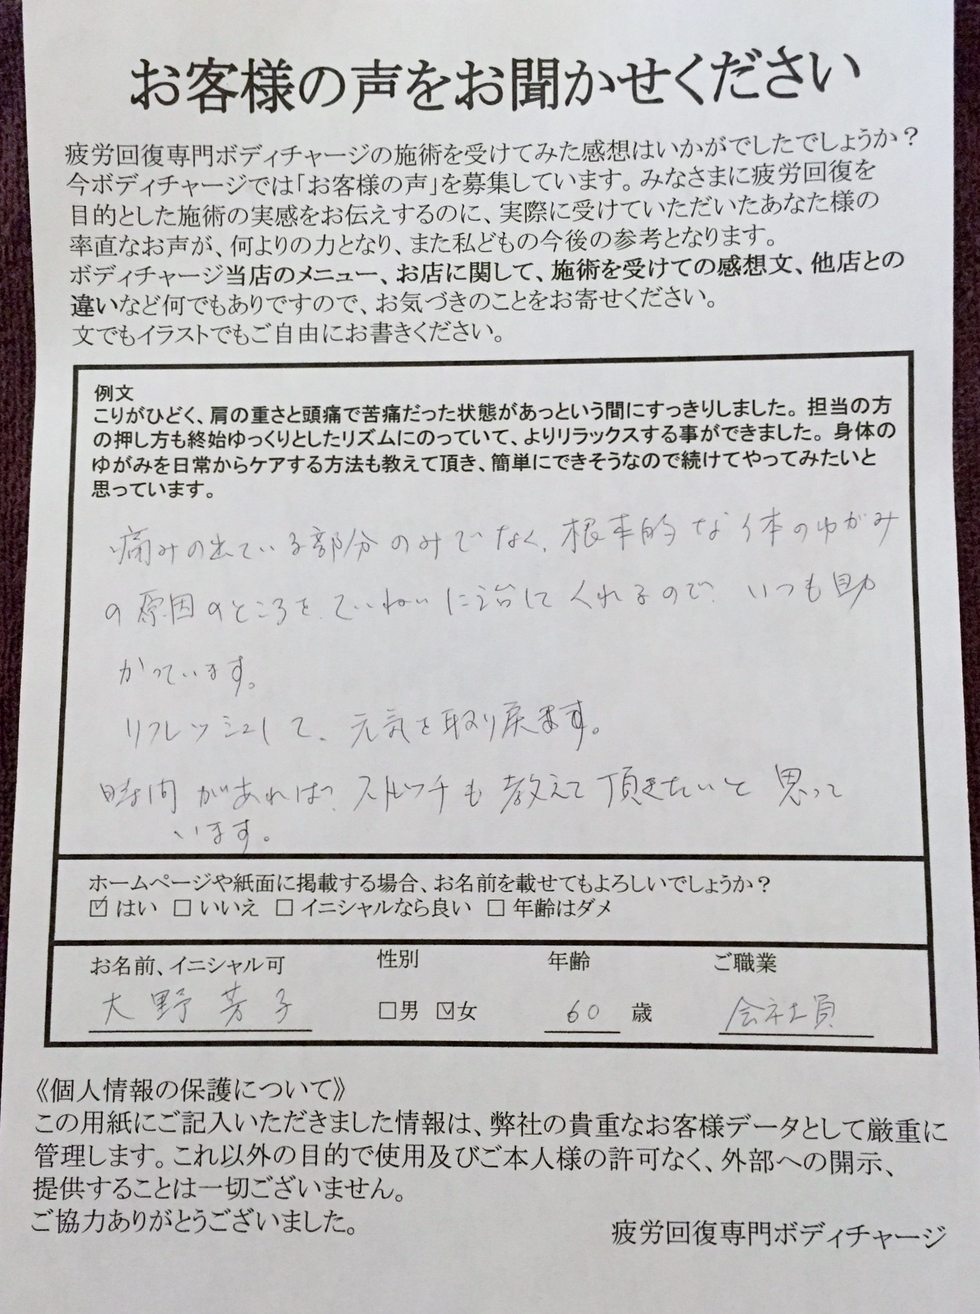 お客様の声をお聞かせください
疲労回復専門ボディチャージの施術を受けてみた感想はいかがでしたでしょうか？
今ボディチャージでは「お客様の声」を募集しています。みなさまに疲労回復を
目的とした施術の実感をお伝えするのに、実際に受けていただいたあなた様の
率直なお声が、何よりの力となり、また私どもの今後の参考となります。
ボディチャージ当店のメニュー、お店に関して、施術を受けての感想文、他店との
違いなど何でもありですので、お気づきのことをお寄せください。
文でもイラストでもご自由にお書きください。
例文
こりがひどく、肩の重さと頭痛で苦痛だった状態があっという間にすっきりしました。担当の方
の押し方も終始ゆっくりとしたリズムにのっていて、よりリラックスする事ができました。身体の
ゆがみを日常からケアする方法も教えて頂き、簡単にできそうなので続けてやってみたいと
思っています。
痛みの出ている部分のみでなく、根本的な体のゆがみ
の原因のところを、ていねいに治してくれるので、いつも助
かっています。
リフレッシュして、元気を取り戻ます。
時間があれば、ストレッチも教えて頂きたいと思って
います。
ホームページや紙面に掲載する場合、お名前を載せてもよろしいでしょうか？
☑はい □いいえ □イニシャルなら良い □年齢はダメ
お名前、イニシャル可 性別 年齢 ご職業
大野芳子 □男 ☑女 60 歳 会社員
《個人情報の保護について》
この用紙にご記入いただきました情報は、弊社の貴重なお客様データとして厳重に
管理します。これ以外の目的で使用及びご本人様の許可なく、外部への開示、
提供することは一切ございません。
ご協力ありがとうございました。
疲労回復専門ボディチャージ